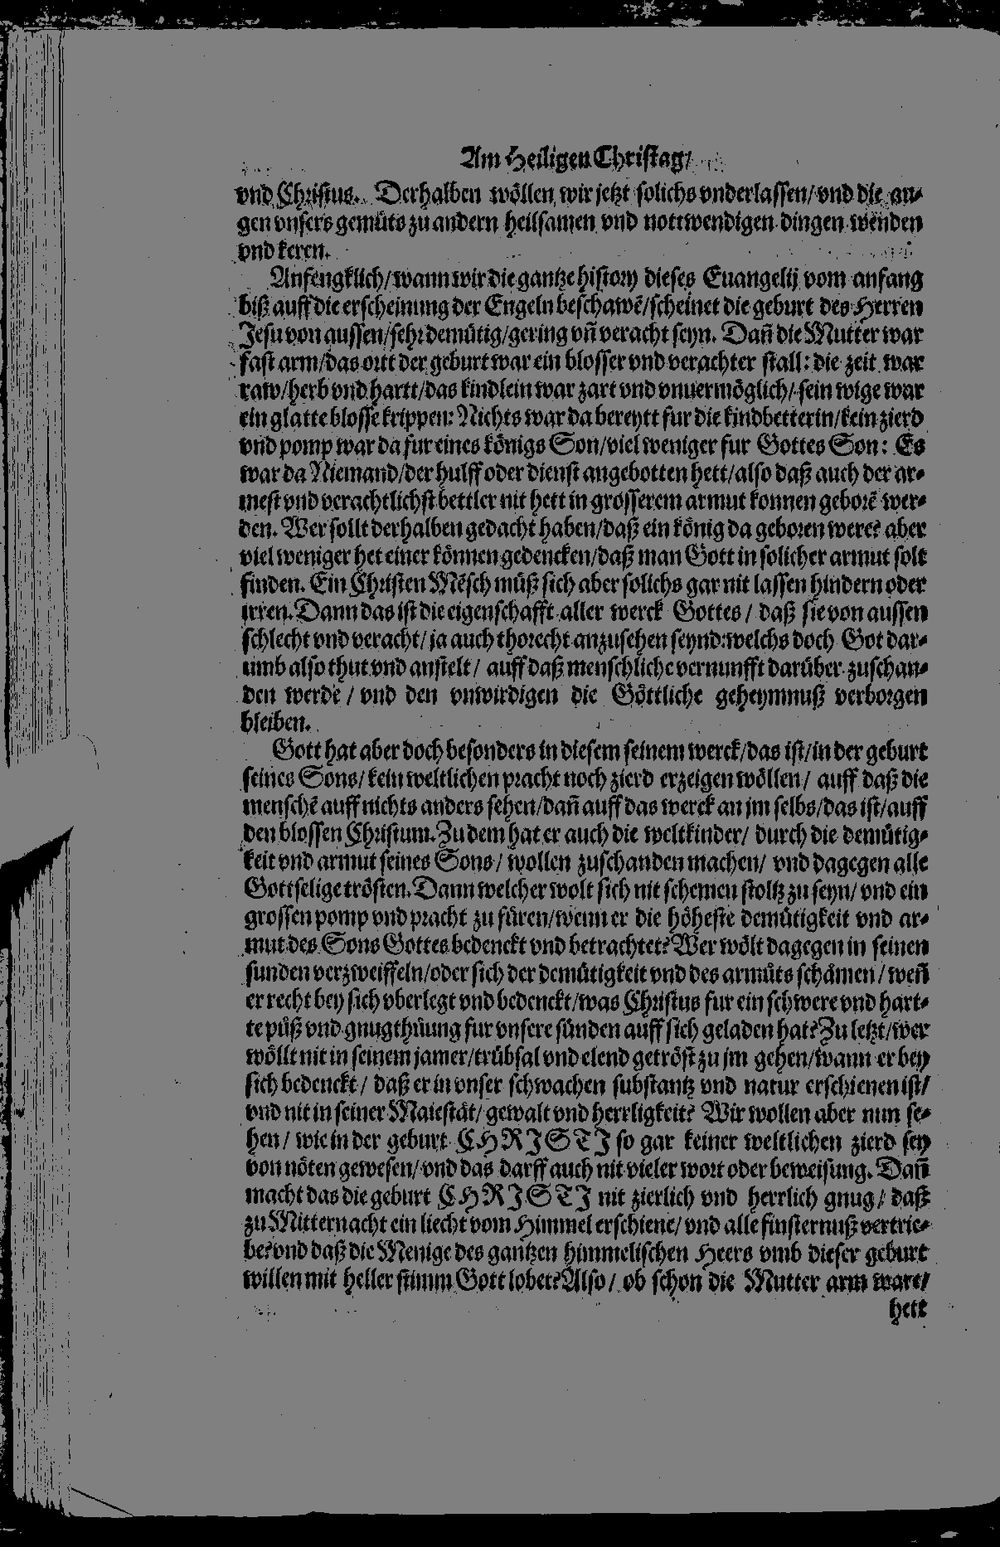 Am Heiligen Christag/
vnd Christus. Derhalben wöllen wir jetzt solichs vnderlassen/ vnd die au-
gen vnsers gemüts zu andern heilsamen vnd nottwendigen dingen wenden
vnd keren.
Anfengklich/ wann wir die gantze history dieses Euangelij vom anfang
biß auff die erscheinung der Engeln beschawē/ scheinet die geburt des Herren
Jesu von aussen/ sehr demütig/ gering vñ veracht seyn. Dañ die Mutter war
fast arm/ das ortt der geburt war ein blosser vnd verachter stall: die zeit war
raw/ herb vnd hartt/ das kindlein war zart vnd vnuermöglich/ sein wige war
ein glatte blosse krippen: Nichts war da bereytt fur die kindbetterin/ kein zierd
vnd pomp war da fur eines königs Son/ viel weniger fur Gottes Son: Es
war da Niemand/ der hulff oder dienst angebotten hett/ also daß auch der ar-
mest vnd verachtlichst bettler nit hett in grösserem armut konnen geborē wer-
den. Wer sollt derhalben gedacht haben/ daß ein könig da geboren were? aber
viel weniger het einer können gedencken/ daß man Gott in solicher armut solt
finden. Ein Christen Mēsch müß sich aber solichs gar nit lassen hindern oder
irren. Dann das ist die eigenschafft aller werck Gottes/ daß sie von aussen
schlecht vnd veracht/ ja auch thorecht anzusehen seynd: welchs doch Got dar-
umb also thut vnd anstelt/ auff daß menschliche vernunfft darüber zuschan-
den werde/ vnd den vnwirdigen die Göttliche geheymnuß verborgen
bleiben.
Gott hat aber doch besonders in diesem seinem werck/ das ist/ in der geburt
seines Sons/ kein weltlichen pracht noch zierd erzeigen wöllen/ auff daß die
menschē auff nichts anders sehen/ dañ auff das werck an im selbs/ das ist/ auff
den blossen Christum. Zu dem hat er auch die weltkinder/ durch die demütig-
keit vnd armut seines Sons/ wollen zuschanden machen/ vnd dagegen alle
Gottselige trösten. Dann welcher wolt sich nit schemen stoltz zu seyn/ vnd ein
grossen pomp vnd pracht zu füren/ wenn er die höheste demütigkeit vnd ar-
mut des Sons Gottes bedenckt vnd betrachtet? Wer wölt dagegen in seinen
sunden verzweiffeln/ oder sich der demütigkeit vnd des armüts schämen/ weñ
er recht bey sich vberlegt vnd bedenckt/ was Christus fur ein schwere vnd hart-
te püß vnd gnugthüung fur vnsere sünden auff sich geladen hat? Zu letzt/ wer
wöllt nit in seinem jamer/ trübsal vnd elend getröst zu jm gehen/ wann er bey
sich bedenckt/ daß er in vnser schwachen substantz vnd natur erschienen ist/
vnd nit in seiner Maiestät/ gewalt vnd herrligkeit? Wir wollen aber nun se-
hen/ wie in der geburt CHRISTI so gar keiner weltlichen zierd sey
von nöten gewesen/ vnd das darff auch nit vieler wort oder beweisung. Dañ
macht das die geburt CHRISTI nit zierlich vnd herrlich gnug/ daß
zu Mitternacht ein liecht vom Himmel erschiene/ vnd alle finsternuß vertrie-
be? vnd daß die Menige des gantzen himmelischen Heers vmb dieser geburt
willen mit heller stimm Gott lobet? Also/ ob schon die Mutter arm ware/
hett